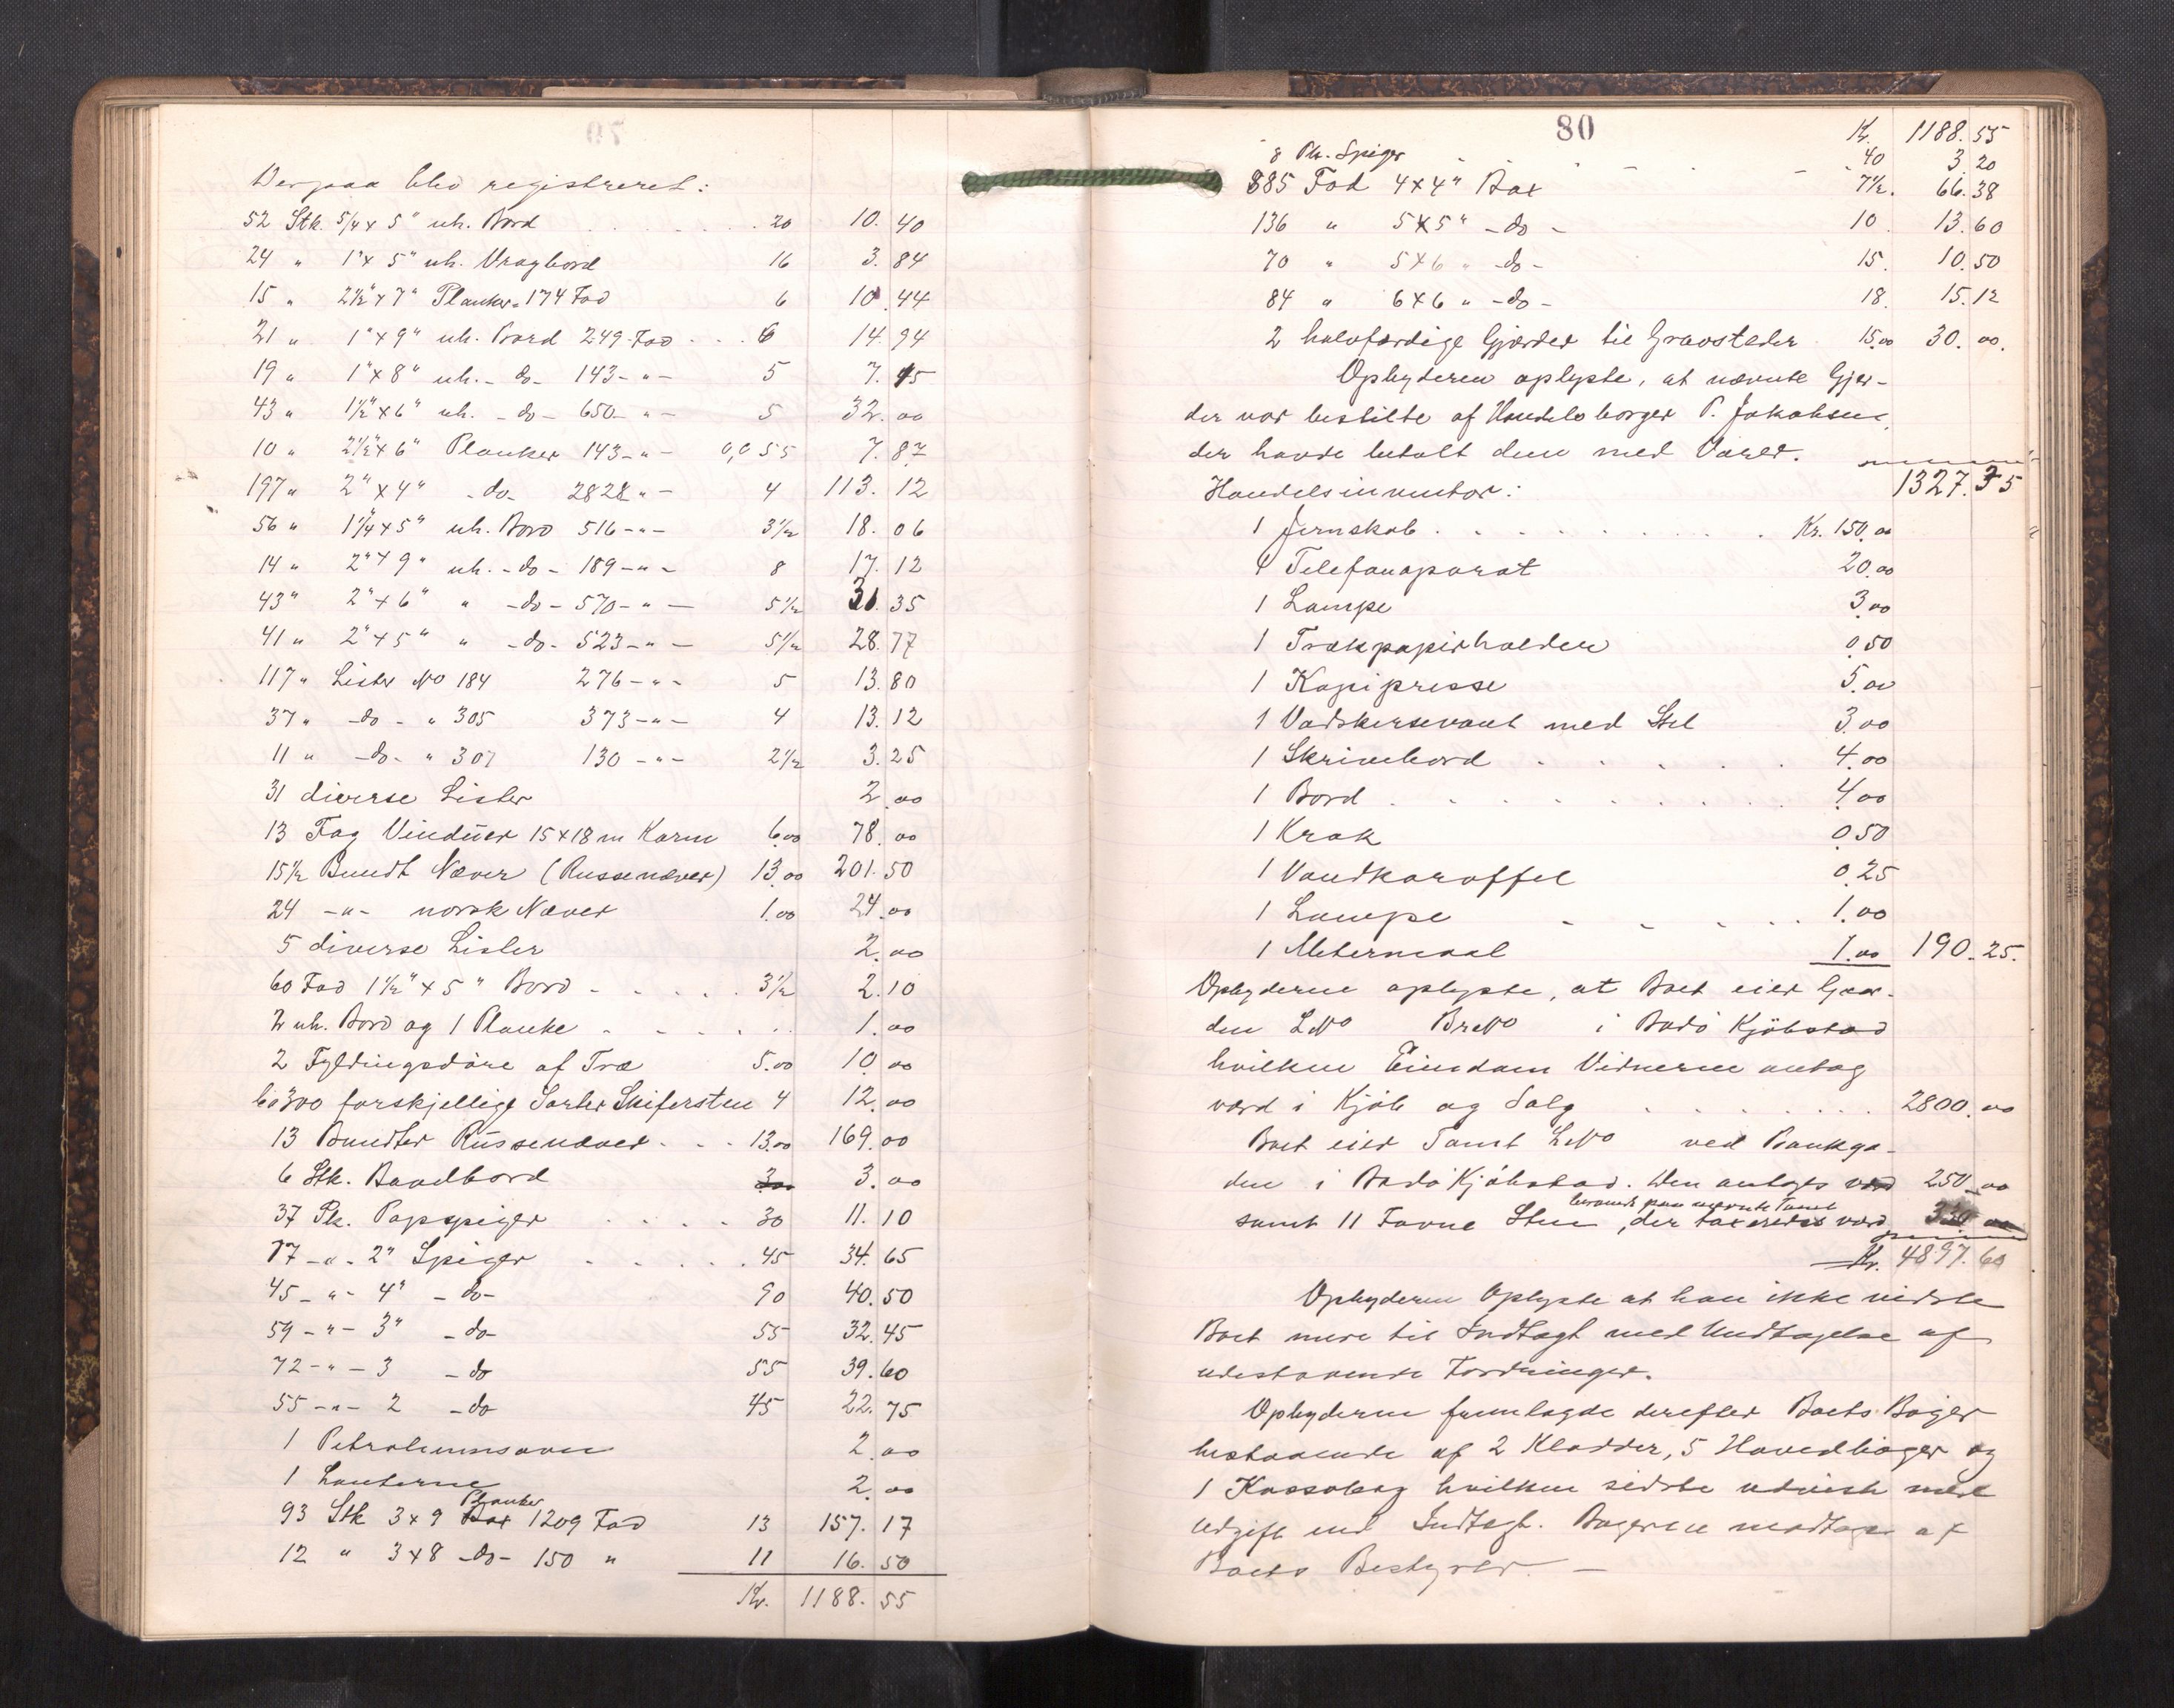 Derpaa blev registreret:
52 Stk. 5/4 x 5" uh. Bord 20 10.40
24 " 1" x 5" uh. Vragbord 16 3.84
15 " 2½" x 7" Planker = 174 Fod 6 10.44
21 " 1" x 9" uh. Bord 249 Fod 6 14.94
19 " 1" x 8" uh. - do - 143 - " - 5 7.15
43 " 1½" x 6" uh. - do - 650 - " - 5 32.00
10 " 2½" x 6" Planker 143 - " - 0,055 7.87
197 " 2" x 4" - do - 2828 " - 4 113.12
56 " 1¼ x 5" uh. Bord 516 - " - 3½ 18.06
14 " 2" x 9" uh. - do - 189 - " - 8 17.12
43 " 2" x 6" " - do - 570 - " - 5½ 31.35
41 " 2" x 5" " - do - 523 - " - 5½ 28.77
117 " Lister No 184 276 - " - 5 13.80
37 " - do - " 305 373 - " - 4 13.12
11 " - do - " 307 130 - " - 2½ 3.25
31 diverse Lister 2.00
13 Fag Vinduer 15 x 18 m Karm 6.00 78.00
15½ Bundt Næver (Russenæver) 13.00 201.50
24 - " - norsk Næver 1.00 24.00
5 diverse Lister 2.00
60 Fod 1½" x 5" Bord 3½ 2.10
2 uh. Bord og 1 Planke 1.00
2 Fyldingsdöre af Træ 5.00 10.00
ca 300 forskjellige Sorter Skifersten 4 12.00
13 Bundter Russenæver 13.00 169.00
6 Stk. Bandbord 3.00
37 Pk. Papspiger 30 11.10
77 - " - 2" Spiger 45 34.65
45 - " - 4" - do - 90 40.50
59 - " - 3" - do - 55 32.45
72 - " - 3 - do 55 39.60
55 - " - 2 - do 45 22.75
1 Petroleumsovn 2.00
1 Lanterne 2.00
93 Stk 3 x 9 Planker 1209 Fod 13 157.17
12 " 3 x 8 - do - 150 " 11 16.50
Kr. 1188.55
80
Kr. 1188.55
8 Pk. Spiger 40 3.20
885 Fod 4 x 4" Box 7½. 66.38
136 " 5 x 5" - do - 10 13.60
70 " 5 x 6 " - do - 15. 10.50
84 " 6 x 6 " - do - 18. 15.12
2 halvfærdige Gjærder til Gravsteder 15.00 30.00.
Opbyderen oplyste, at nævnte Gjær-
der var bestilte af Handelsborger P. Jakobsen,
der havde betalt dem med Varer.
1327.35
Handelsinventar:
1 Jernskab Kr. 150.00
1 Telefonaparat 20.00
1 Lampe 3.00
1 Trækpapirholder 0.50
1 Kopipresse 5.00
1 Vadskerservant med Stel 3.00
1 Skrivebord 4.00
1 Bord 4.00
1 Krak 0.50
1 Vandkaraffel 0.25
1 Lampe 1.00
1 Metermaal 1.00 190.25.
Opbyderne oplyste, at Boet eier Gaar-
den LNo BrNo i Bodö Kjöbstad
hvilken Eiendom Vidnerne antog
værd i Kjöb og Salg 2800.00
Boet eier Tomt LNo ved Bankga-
den i Bodö Kjöbstad. Den antoges værd 250.00
beroende paa nævnte Tomt
samt 11 Favne Sten, der taxeredes værd 330.00
Kr. 4897.60
Opbyderen oplyste at han ikke vidste
Boet mere til Indtægt med Undtagelse af
udestaaende Fordringer.
Opbyderen fremlagde derefter Boets Böger
bestaaende af 2 Kladder, 5 Hovedböger og
1 Kassabog hvilken sidste udviste mere
Udgift end Indtægt. Bögerne modtoges af
Boets Bestyrer. -